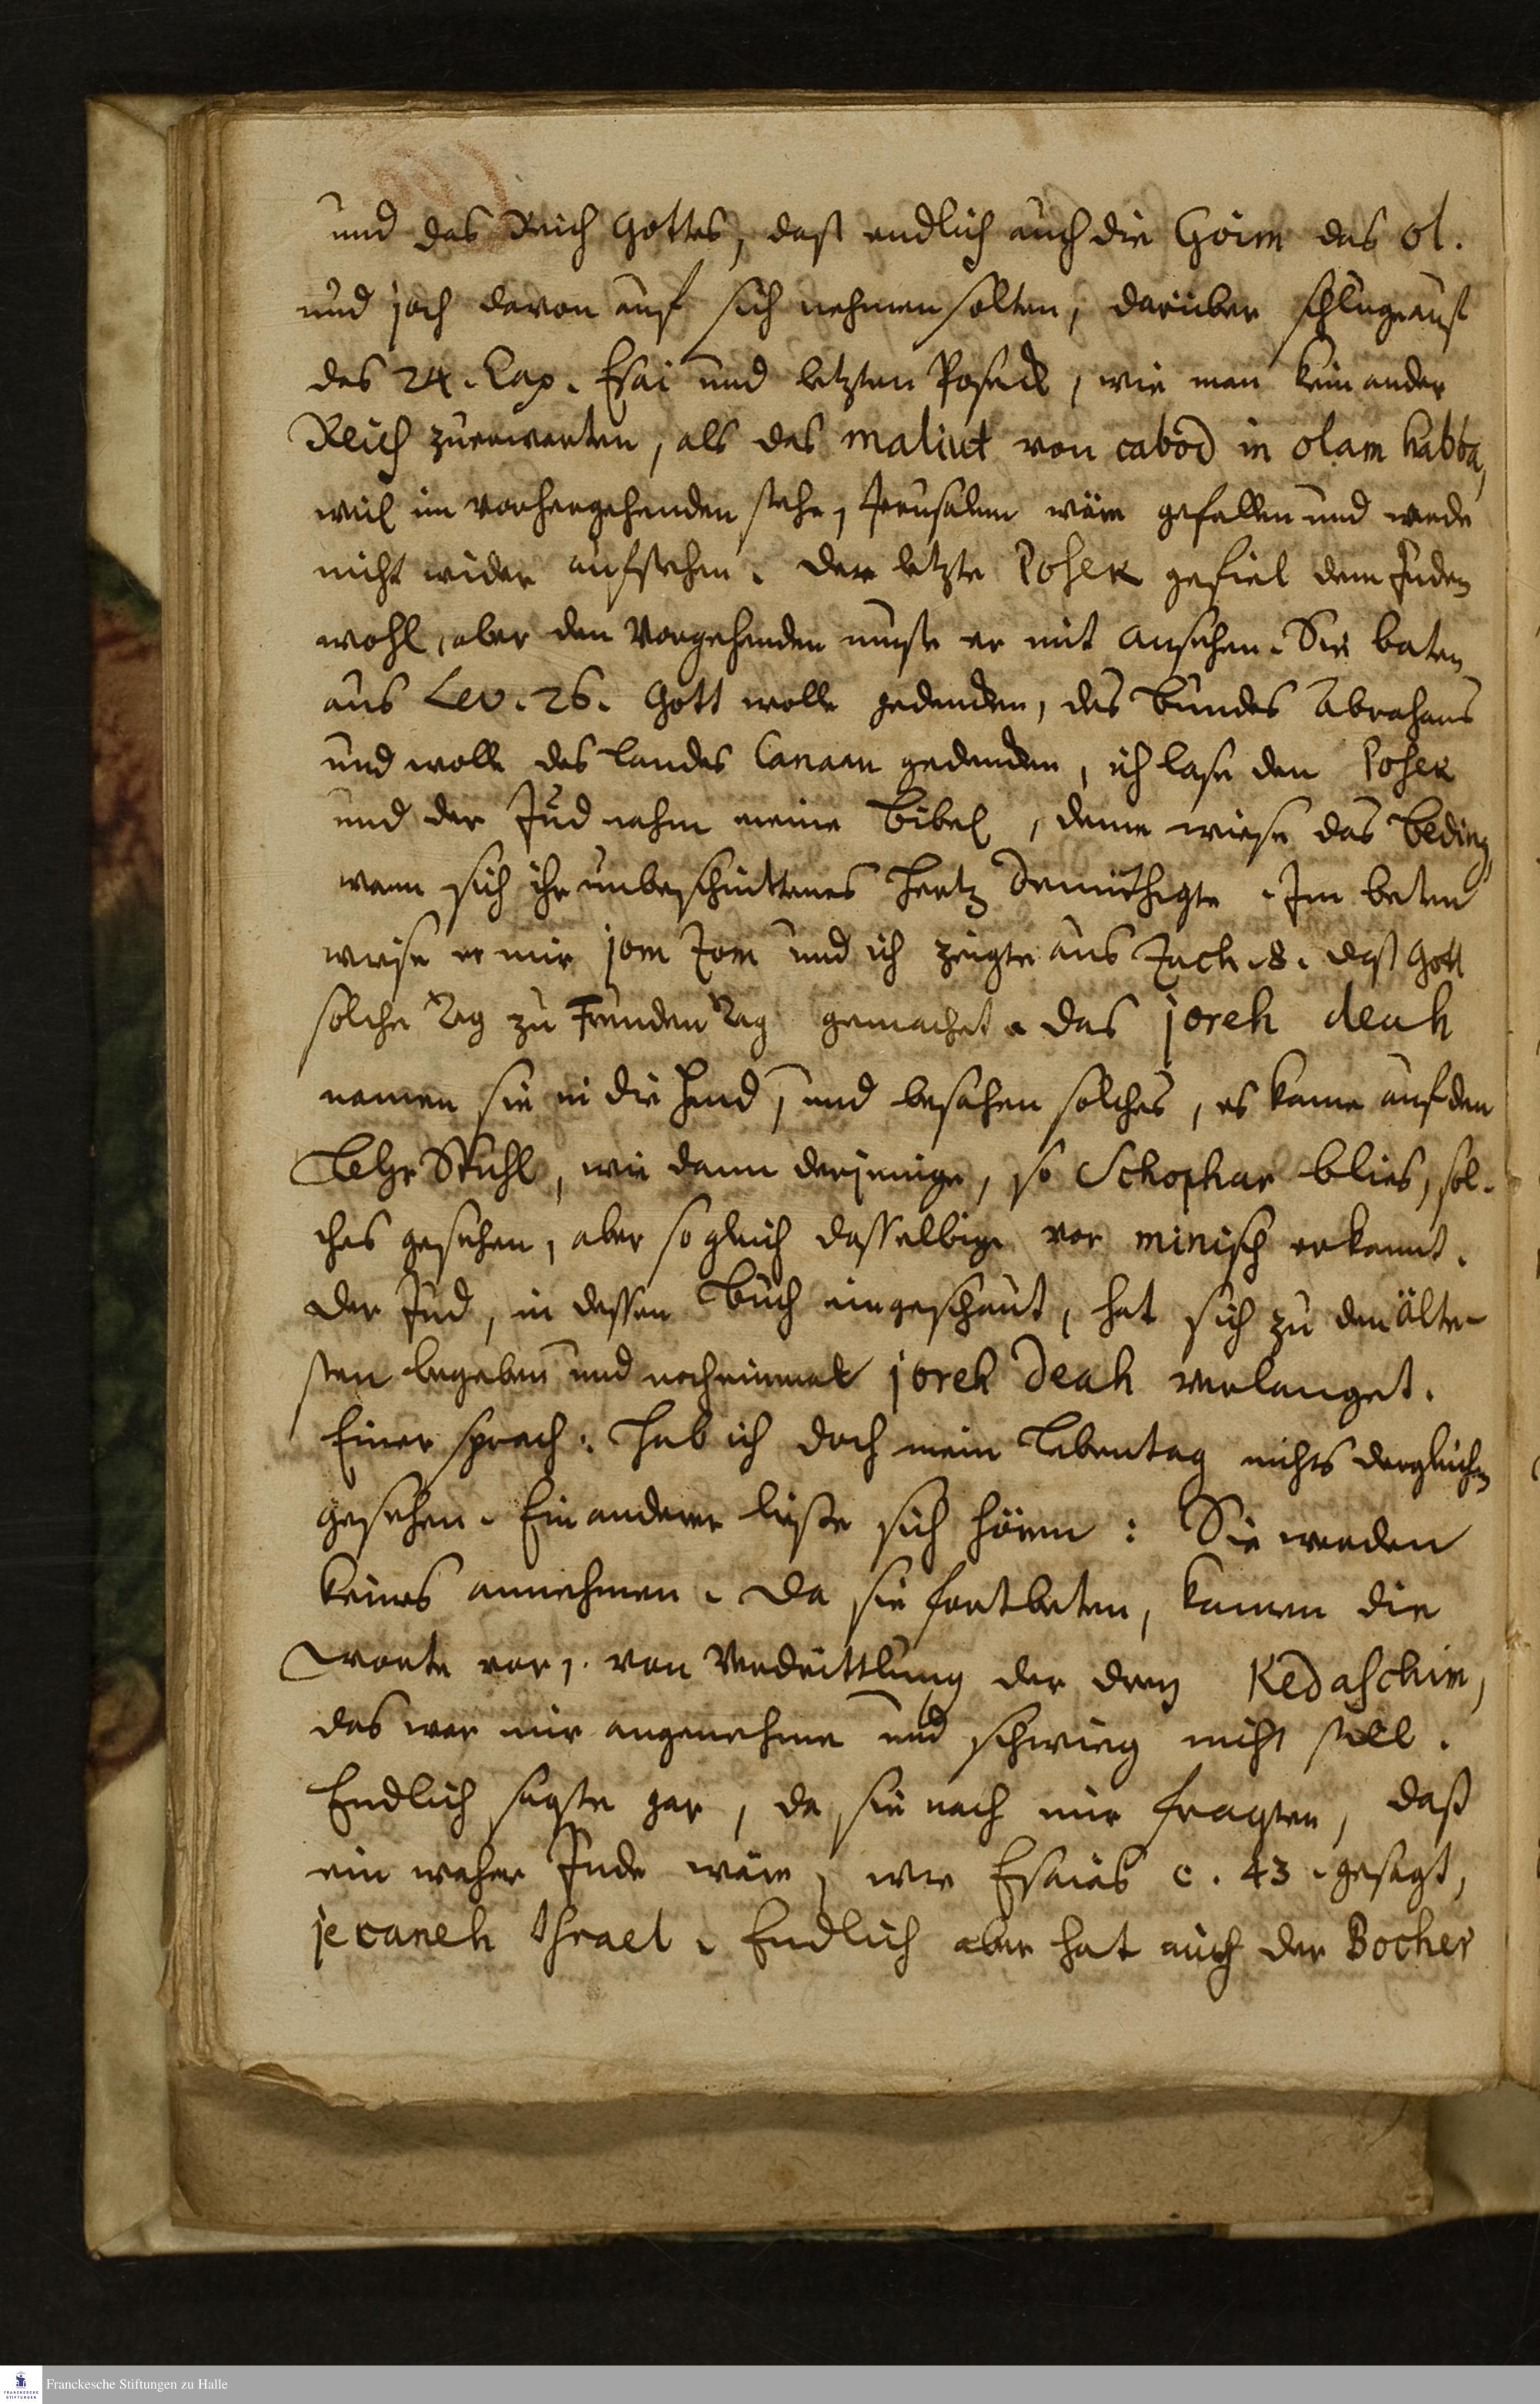 und das Reich Gottes, daß endlich auch die Goim das ol.
und joch davon auf sich nehmen solten, darüber schluge auf
das 24. Cap. Esai und letzten Posuck, wie man kein ander
Reich zuerwarten, als das maliut von cabod in olam habba,
weil im vorhergehenden stehe, Jerusalem wäre gefallen und werde
nicht wider aufstehen. Der letzte Posek gefiel dem Juden
wohl, aber den Vorgehenden muste er mit ansehen. Sie baten
aus Lev. 26. Gott wolle gedencken, des Bundes Abrahams
und wolle des Landes Canaan gedencken, ich lase den Posek
und der Jud nahm meine Bibel, deme wiese das Beding
wann sich ihr unbeschnittenes Hertz demüthigte. Im beten
wiese er mir jom Zom und ich zeigte aus Zach. 8. daß Gott
solche Tag zu Freuden Tag gemachet. Das joreh deah
namen sie in die Hend, und besahen solches, es kame auf den
Lehr Stuhl, wie dann derjenige, so Schophar blies, sol-
ches gesehen, aber so gleich dasselbige vor minisch erkannt.
Der Jud, in dessen Buch eingeschaut, hat sich zu den älte-
sten begeben und nocheinmal joreh deah verlanget.
Einer sprach: Hab ich doch mein Lebentag nichts dergleichen
gesehen. Ein anderer liesse sich hören: Sie werden
keines annehmen. Da sie fortbeten, kamen die
Worte vor, von Verdrittlung der drey Kedaschim,
das war mir angenehme und schwieg nicht still.
Endlich sagte gar, da sie nach mir fragten, daß
ein waher Jude wäre, wie Esaias c. 43. gesagt,
jecaneh Israel. Endlich aber hat auch der Bocher
Franckesche Stiftungen zu Halle